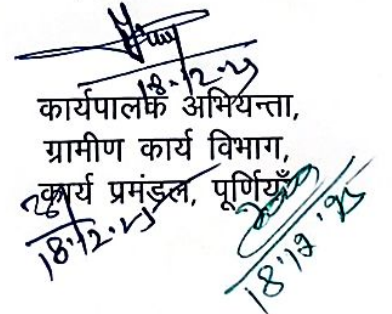 18.12.25
कार्यपालक अभियन्ता,
ग्रामीण कार्य विभाग,
कार्य प्रमंडल, पूर्णियाँ
18.12.25
18.12.25